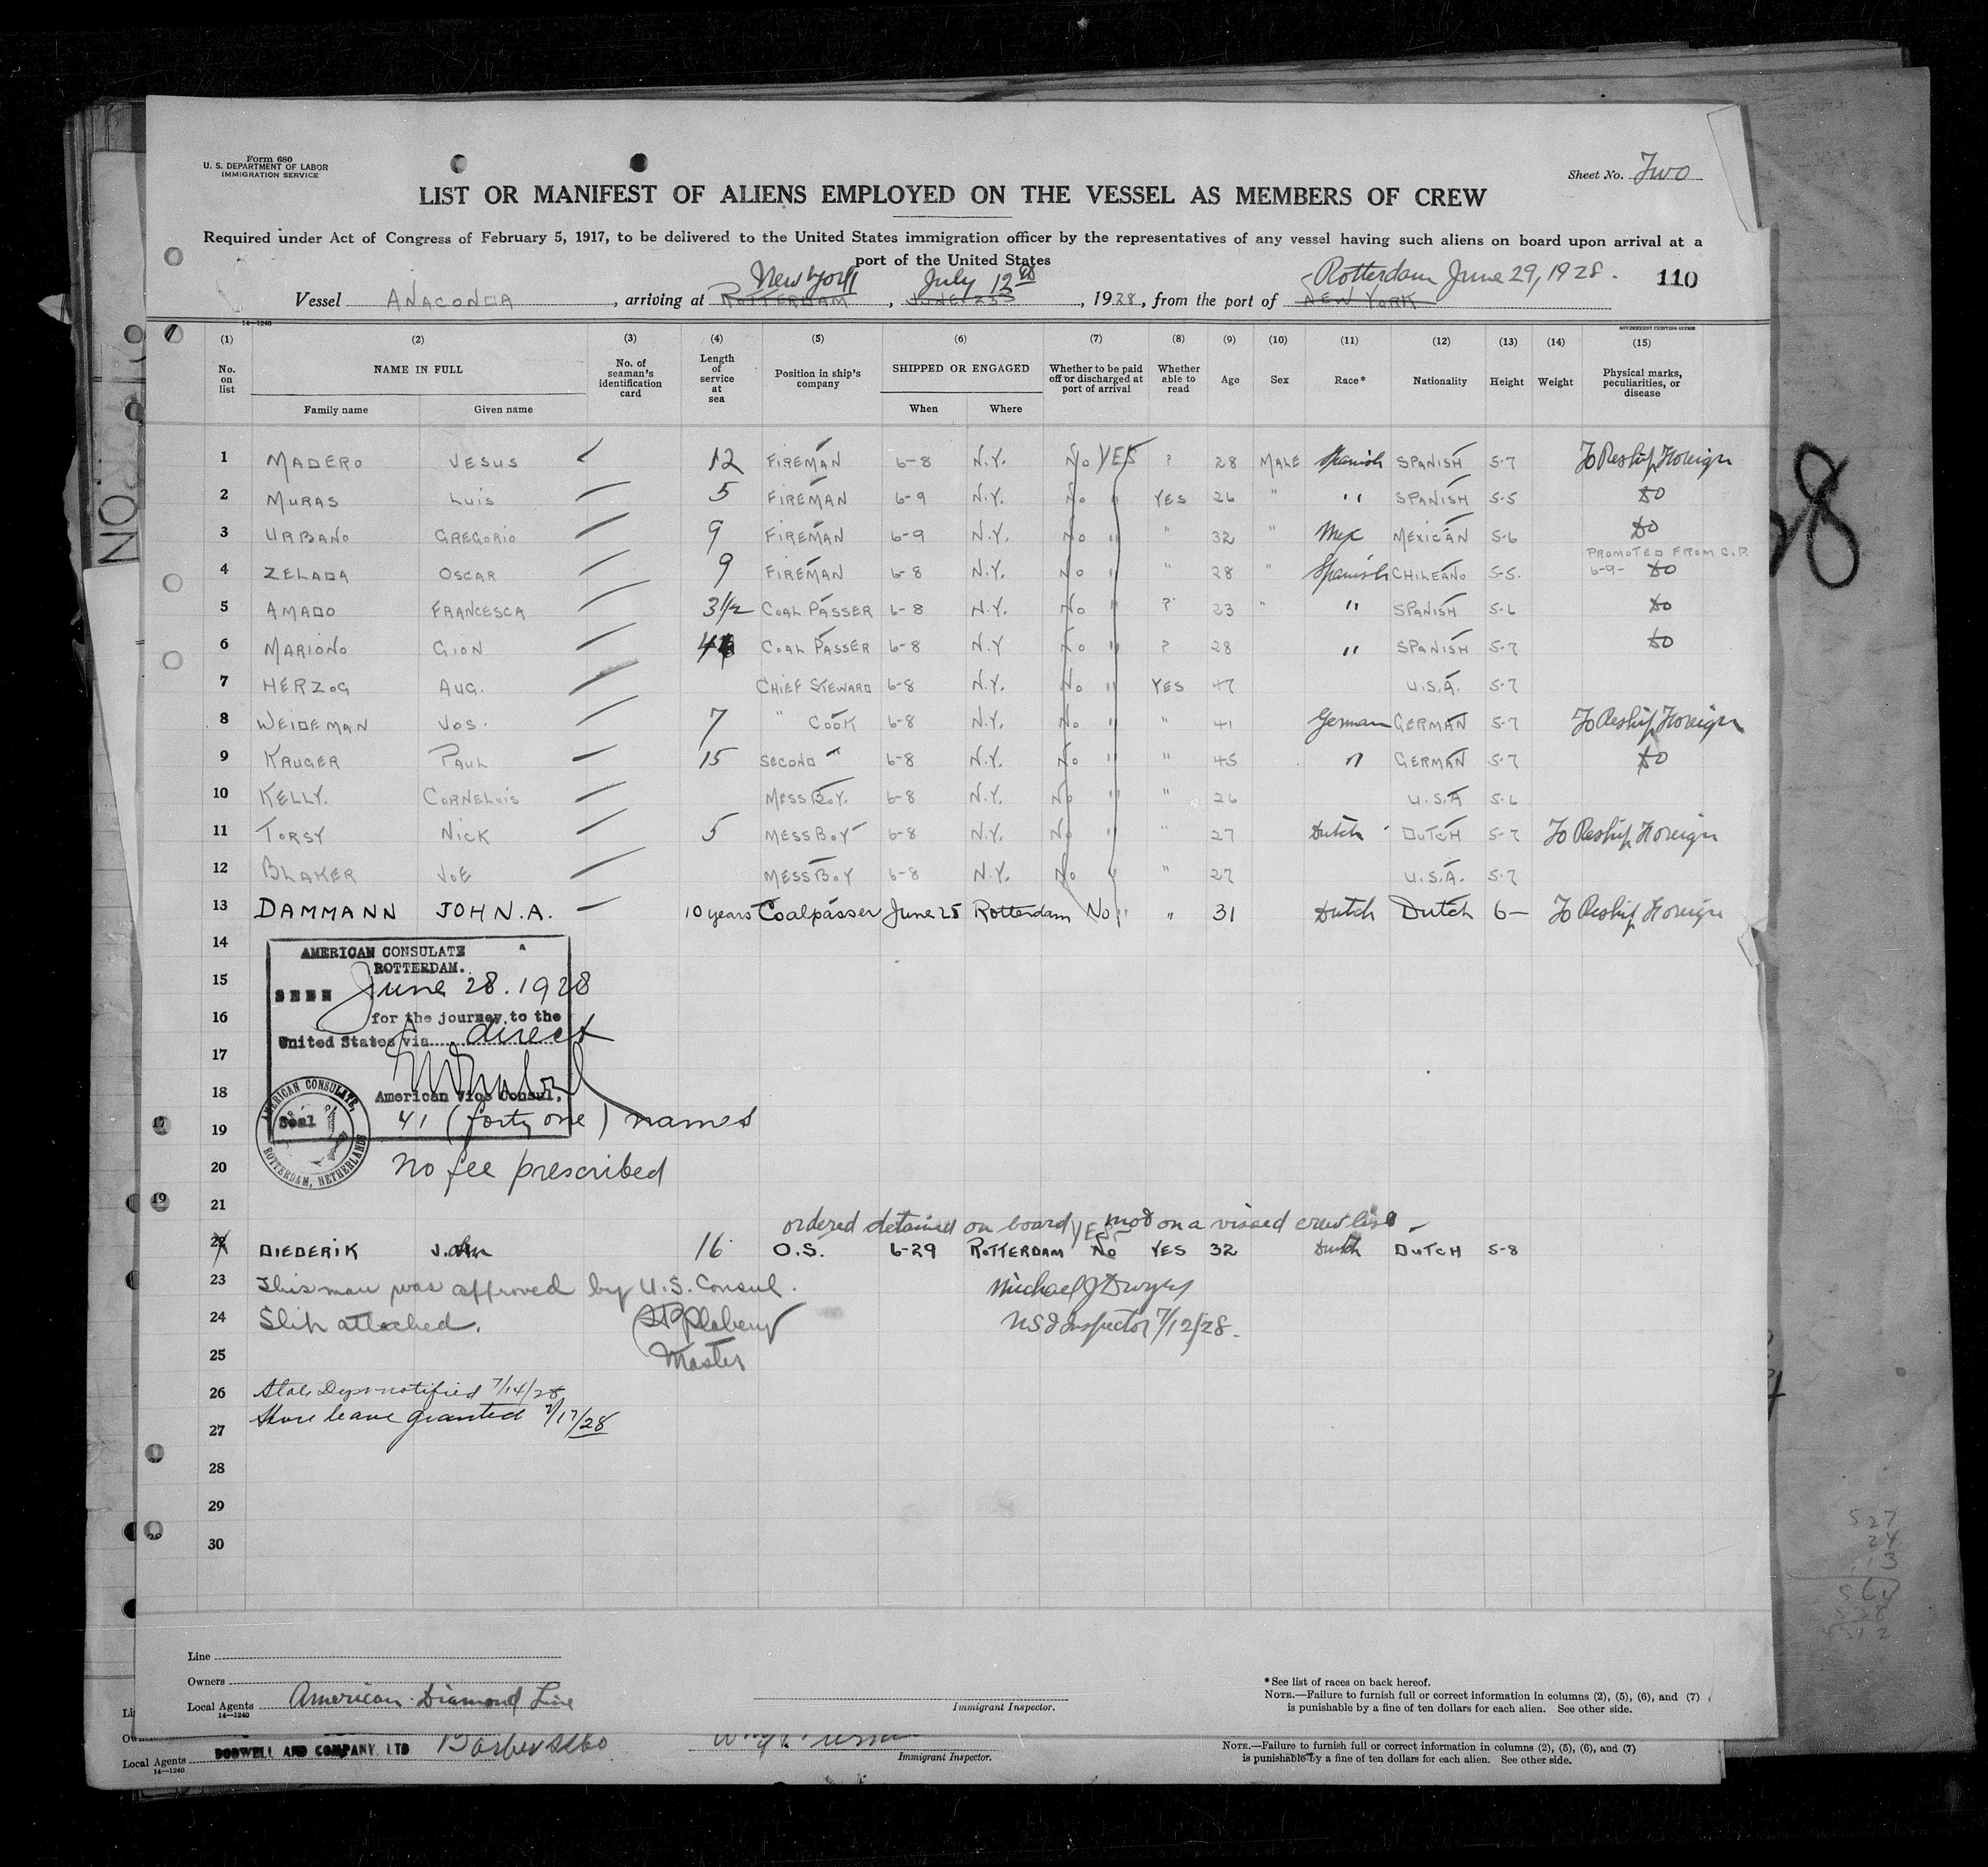 Form 680
U. S. DEPARTMENT OF LABOR
IMMIGRATION SERVICE
Sheet No. Two
LIST OR MANIFEST OF ALIENS EMPLOYED ON THE VESSEL AS MEMBERS OF CREW
Required under Act of Congress of February 5, 1917, to be delivered to the United States immigration officer by the representatives of any vessel having such aliens on board upon arrival at a
port of the United States
New York July 12th Rotterdam June 29, 1928. 110
Vessel ANACONDA, arriving at ROTTERDAM, JUNE 23, 1928, from the port of NEW YORK
14—1240
GOVERNMENT PRINTING OFFICE
(1) (2) (3) (4) (5) (6) (7) (8) (9) (10) (11) (12) (13) (14) (15)
No. on list NAME IN FULL No. of seaman's identification card Length of service at sea Position in ship's company SHIPPED OR ENGAGED Whether to be paid off or discharged at port of arrival Whether able to read Age Sex Race* Nationality Height Weight Physical marks, peculiarities, or disease
Family name Given name When Where
1 MADERO JESUS 12 FIREMAN 6-8 N.Y. No YES ? 28 MALE Spanish SPANISH 5-7 To Reship Foreign
2 MURAS LUIS 5 FIREMAN 6-9 N.Y. No " YES 26 " " SPANISH 5-5 do
3 URBANO GREGORIO 9 FIREMAN 6-9 N.Y. No " " 32 " Mex MEXICAN 5-6 do
PROMOTED FROM C.P.
4 ZELADA OSCAR 9 FIREMAN 6-8 N.Y. No " " 28 " Spanish CHILEANO 5-5. 6-9- do
5 AMADO FRANCESCA 3 1/2 COAL PASSER 6-8 N.Y. No " ? 23 " " SPANISH 5-6 do
6 MARIONO GION COAL PASSER 6-8 N.Y No " ? 28 " SPANISH 5-7 do
7 HERZOG AUG. CHIEF STEWARD 6-8 N.Y. No " YES 47 U.S.A. 5-7
8 WEIDEMAN JOS. 7 " COOK 6-8 N.Y. No " " 41 German GERMAN 5-7 To Reship Foreign
9 KRUGER PAUL 15 SECOND " 6-8 N.Y. No " " 45 " GERMAN 5-7 do
10 KELLY. CORNELUIS MESS BOY. 6-8 N.Y. No " " 26 U.S.A 5-6
11 TORSY NICK 5 MESS BOY 6-8 N.Y. No " " 27 Dutch DUTCH 5-7 To Reship Foreign
12 BLAKER JOE MESS BOY 6-8 N.Y. No " " 27 U.S.A. 5-7
13 DAMMANN JOHN.A. 10 years Coalpasser June 25 Rotterdam No " " 31 Dutch Dutch 6— To Reship Foreign
14
AMERICAN CONSULATE
ROTTERDAM.
15
SEEN June 28. 1928
16
for the journey to the
United States via direct
17
18
American Vice Consul,
AMERICAN CONSULATE,
ROTTERDAM, NETHERLANDS
Seal
19
41 (forty one) names
20
no fee prescribed
21
ordered detained on board YES not on a visaed crew list
22 DIEDERIK John 16 O.S. 6-29 ROTTERDAM No YES 32 Dutch DUTCH 5-8
23 This man was approved by U.S. Consul. Michael J Dwyer
24 Slip attached. Inspector 7/12/28.
25 Master
26 State Dept notified 7/14/28
27 Shore leave granted 7/17/28
28
29
30
Line
Owners
Local Agents American Diamond Line
14—1240
Immigrant Inspector.
*See list of races on back hereof.
NOTE.—Failure to furnish full or correct information in columns (2), (5), (6), and (7)
is punishable by a fine of ten dollars for each alien. See other side.
Local Agents DODWELL AND COMPANY, LTD
14—1240
Immigrant Inspector.
NOTE.—Failure to furnish full or correct information in columns (2), (5), (6), and (7)
is punishable by a fine of ten dollars for each alien. See other side.